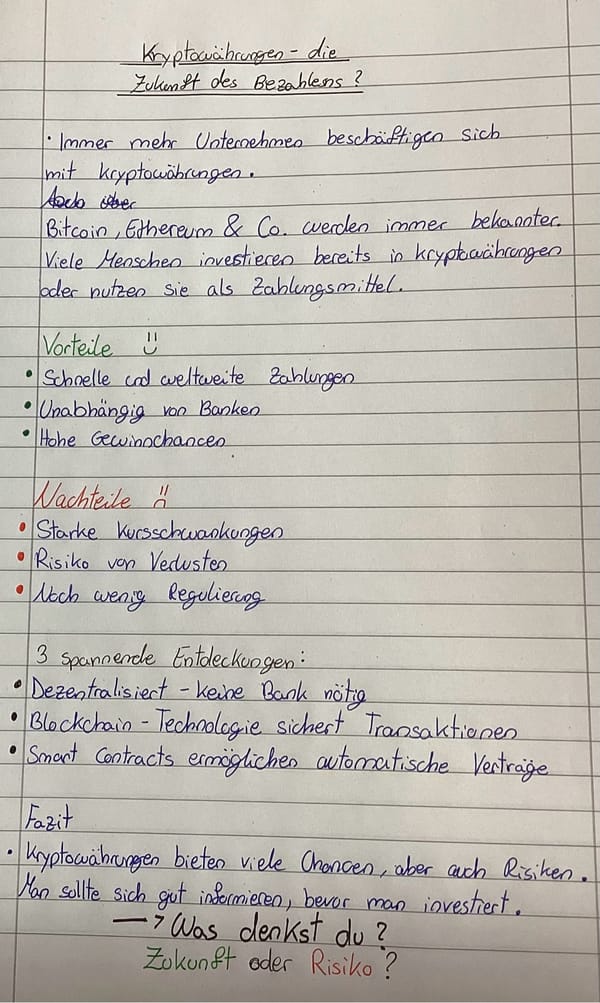 Kryptowährungen – die
Zukunft des Bezahlens?
· Immer mehr Unternehmen beschäftigen sich
mit Kryptowährungen.
Bitcoin, Ethereum & Co. werden immer bekannter.
Viele Menschen investieren bereits in Kryptowährungen
oder nutzen sie als Zahlungsmittel.
Vorteile
• Schnelle und weltweite Zahlungen
• Unabhängig von Banken
• Hohe Gewinnchancen
Nachteile
• Starke Kursschwankungen
• Risiko von Verlusten
• Noch wenig Regulierung
3 spannende Entdeckungen:
• Dezentralisiert – keine Bank nötig
• Blockchain – Technologie sichert Transaktionen
• Smart Contracts ermöglichen automatische Verträge
Fazit
• Kryptowährungen bieten viele Chancen, aber auch Risiken.
Man sollte sich gut informieren, bevor man investiert.
—> Was denkst du?
Zukunft oder Risiko?